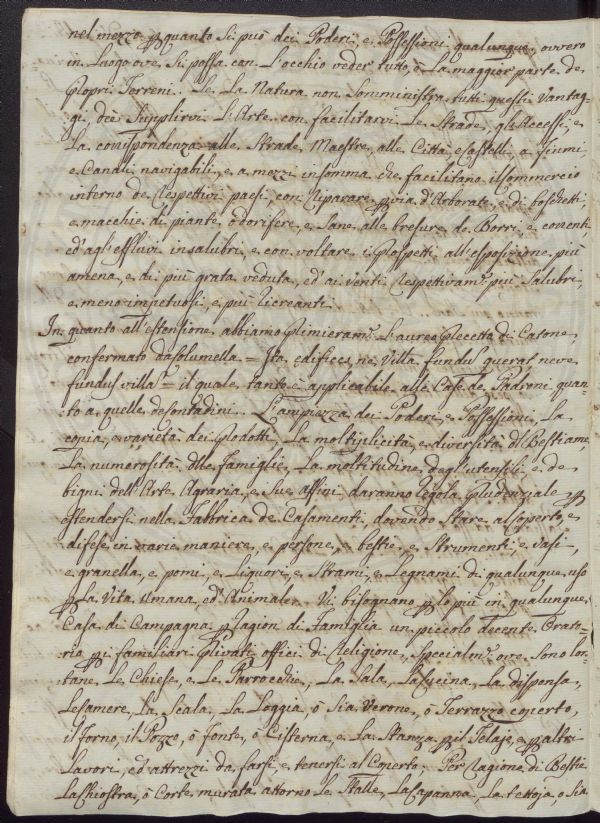 nel mezzo p quanto si può dei Poderi, e Possessioni qualunque, ovvero
in Luogo ove si possa con L'occhio veder tutto, ò La maggior parte de
Propri Terreni. Se La Natura non somministra tutti questi Vantag=
gi, deè supplirvi L'Arte con facilitarvi Le Strade, gli Accessi, e
La corrispondenza alle Strade Maestre, alle Città, e Castelli, a fiumi,
e Canali navigabili, e a mezzi insomma che facilitano il Commercio
interno de Respettivi paesi, con Riparare p via d'Arborate, e di boschetti,
e macchie di piante odorifere, e sane alle bresure de Borri, e correnti
ed agl'effluvi insalubri, e con voltare i Prospetti all'esposizione più
amena, e di più grata veduta, ed ai Venti Respettivam.e più salubri,
e meno impetuosi, e più ricreanti.
In quanto all'estensione abbiamo Primieram.e L'aureo Precetto di Catone,
confermato da Columella = Ita edifices, ne Villa fundus querat neve
fundus villas = il quale tanto è applicabile alle Case de Padroni quan=
to a quelle de Contadini. L'ampiezza dei Poderi, e Possessioni, La
copia, e varietà dei Prodotti, La moltiplicità, e diversità del Bestiame,
La numerosità delle famiglie, La moltitudine degl'utensili e de
bigni dell'Arte Agraria, e sue affini daranno Regola Prudenziale p
estendersi nella Fabbrica de Casamenti, dovendo stare al coperto, e
difese in varie maniere, e persone, e bestie, e strumenti, e vasi,
e granella, e pomi, e Liquori, e strami, e Legnami di qualunque uso
p La Vita Umana, ed Animale. Vi bisognano p lo più in qualunque
Casa di Campagna p Ragion di Famiglia un piccolo decente Orato=
rio p i familiari Privati offici di Religione, specialm.e ove sono lon=
tane Le Chiese, e Le Parrocchie, La Sala, La Cucina, La dispensa,
Le Camere, La Scala, La Loggia ò sia Verone, ò Terrazzo coperto,
il forno, il Pozzo, ò fonte, ò Cisterna, e La Stanza p il Telajo, e p altri
Lavori, ed attrezzi da farsi, e tenersi al Coperto. Per Ragione di Bestie
La Chiostra, ò Corte murata attorno Le Stalle, La Capanna, La tettoja, ò sia